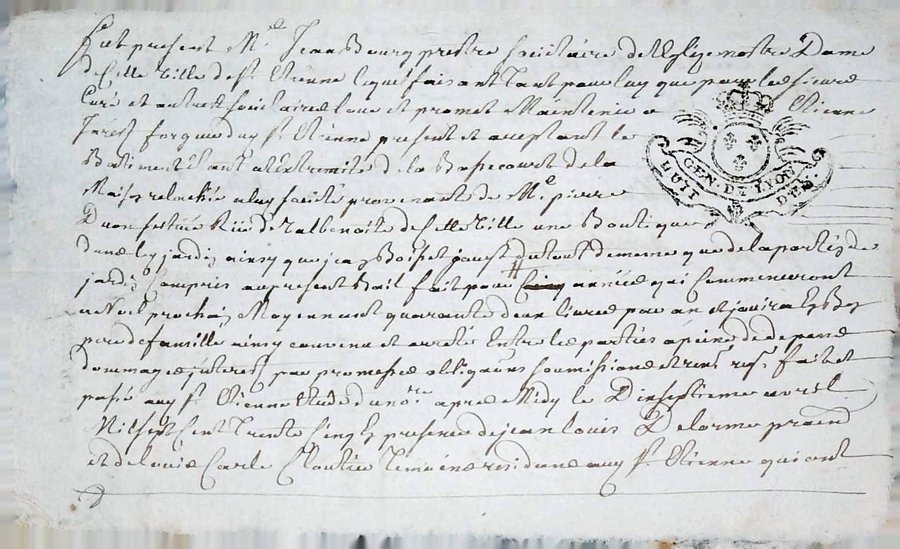 fut present Mre Jean Bourg prestre societaire de leglize nostre Dame
de cette ville de St Etienne lequel faisant tant pour luy que pour les sieurs
curé et autres societaires loue et promet maintenir a Etienne
forgeur dud St Etienne present et acceptant le
Batiment étant a lextremité de la Bassecourt de la
Maison de la societé provenant de Me pierre
rue de de cette ville une Boutique
dans le jardin ainsy que jean Boiset jouist du tout de meme que de la partie de
jardin compris au present Bail fait pour cinq années qui commenceront
a Noel prochain Moyennant quarante deux livres par an et jouira En Bon
pere de famille ainsy convenu et arreté Entre les parties a peine de depens
dommages jnterest par promesses obligaons soumissions et renons fait et
passé aud St Etienne Etude du nore apres Midy le Dixseptieme avril
Mil sept Cent Trente Cinq En presence de jean louis Delorme praticien
et de louis Carle Cloutier Temoins residans aud St Etienne qui ont
GEN. DE LYON
HUIT DEN.